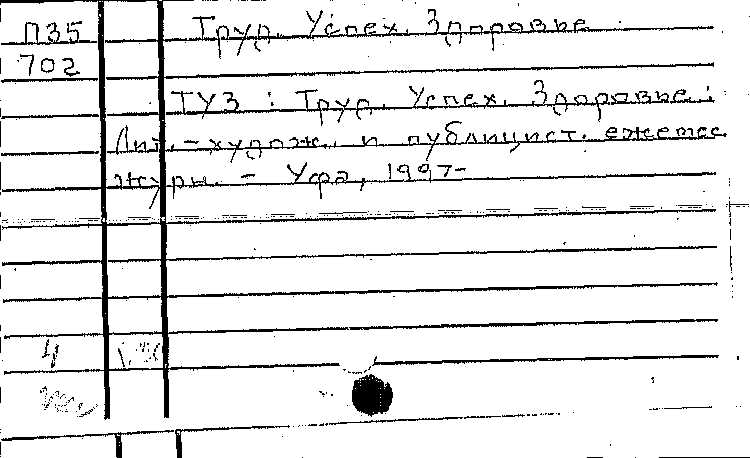 П35 Труд. Успех. Здоровье
702
ТУЗ : Труд. Успех. Здоровье :
Лит.-худож. и публицист. ежемес.
журн. - Уфа, 1997-
4